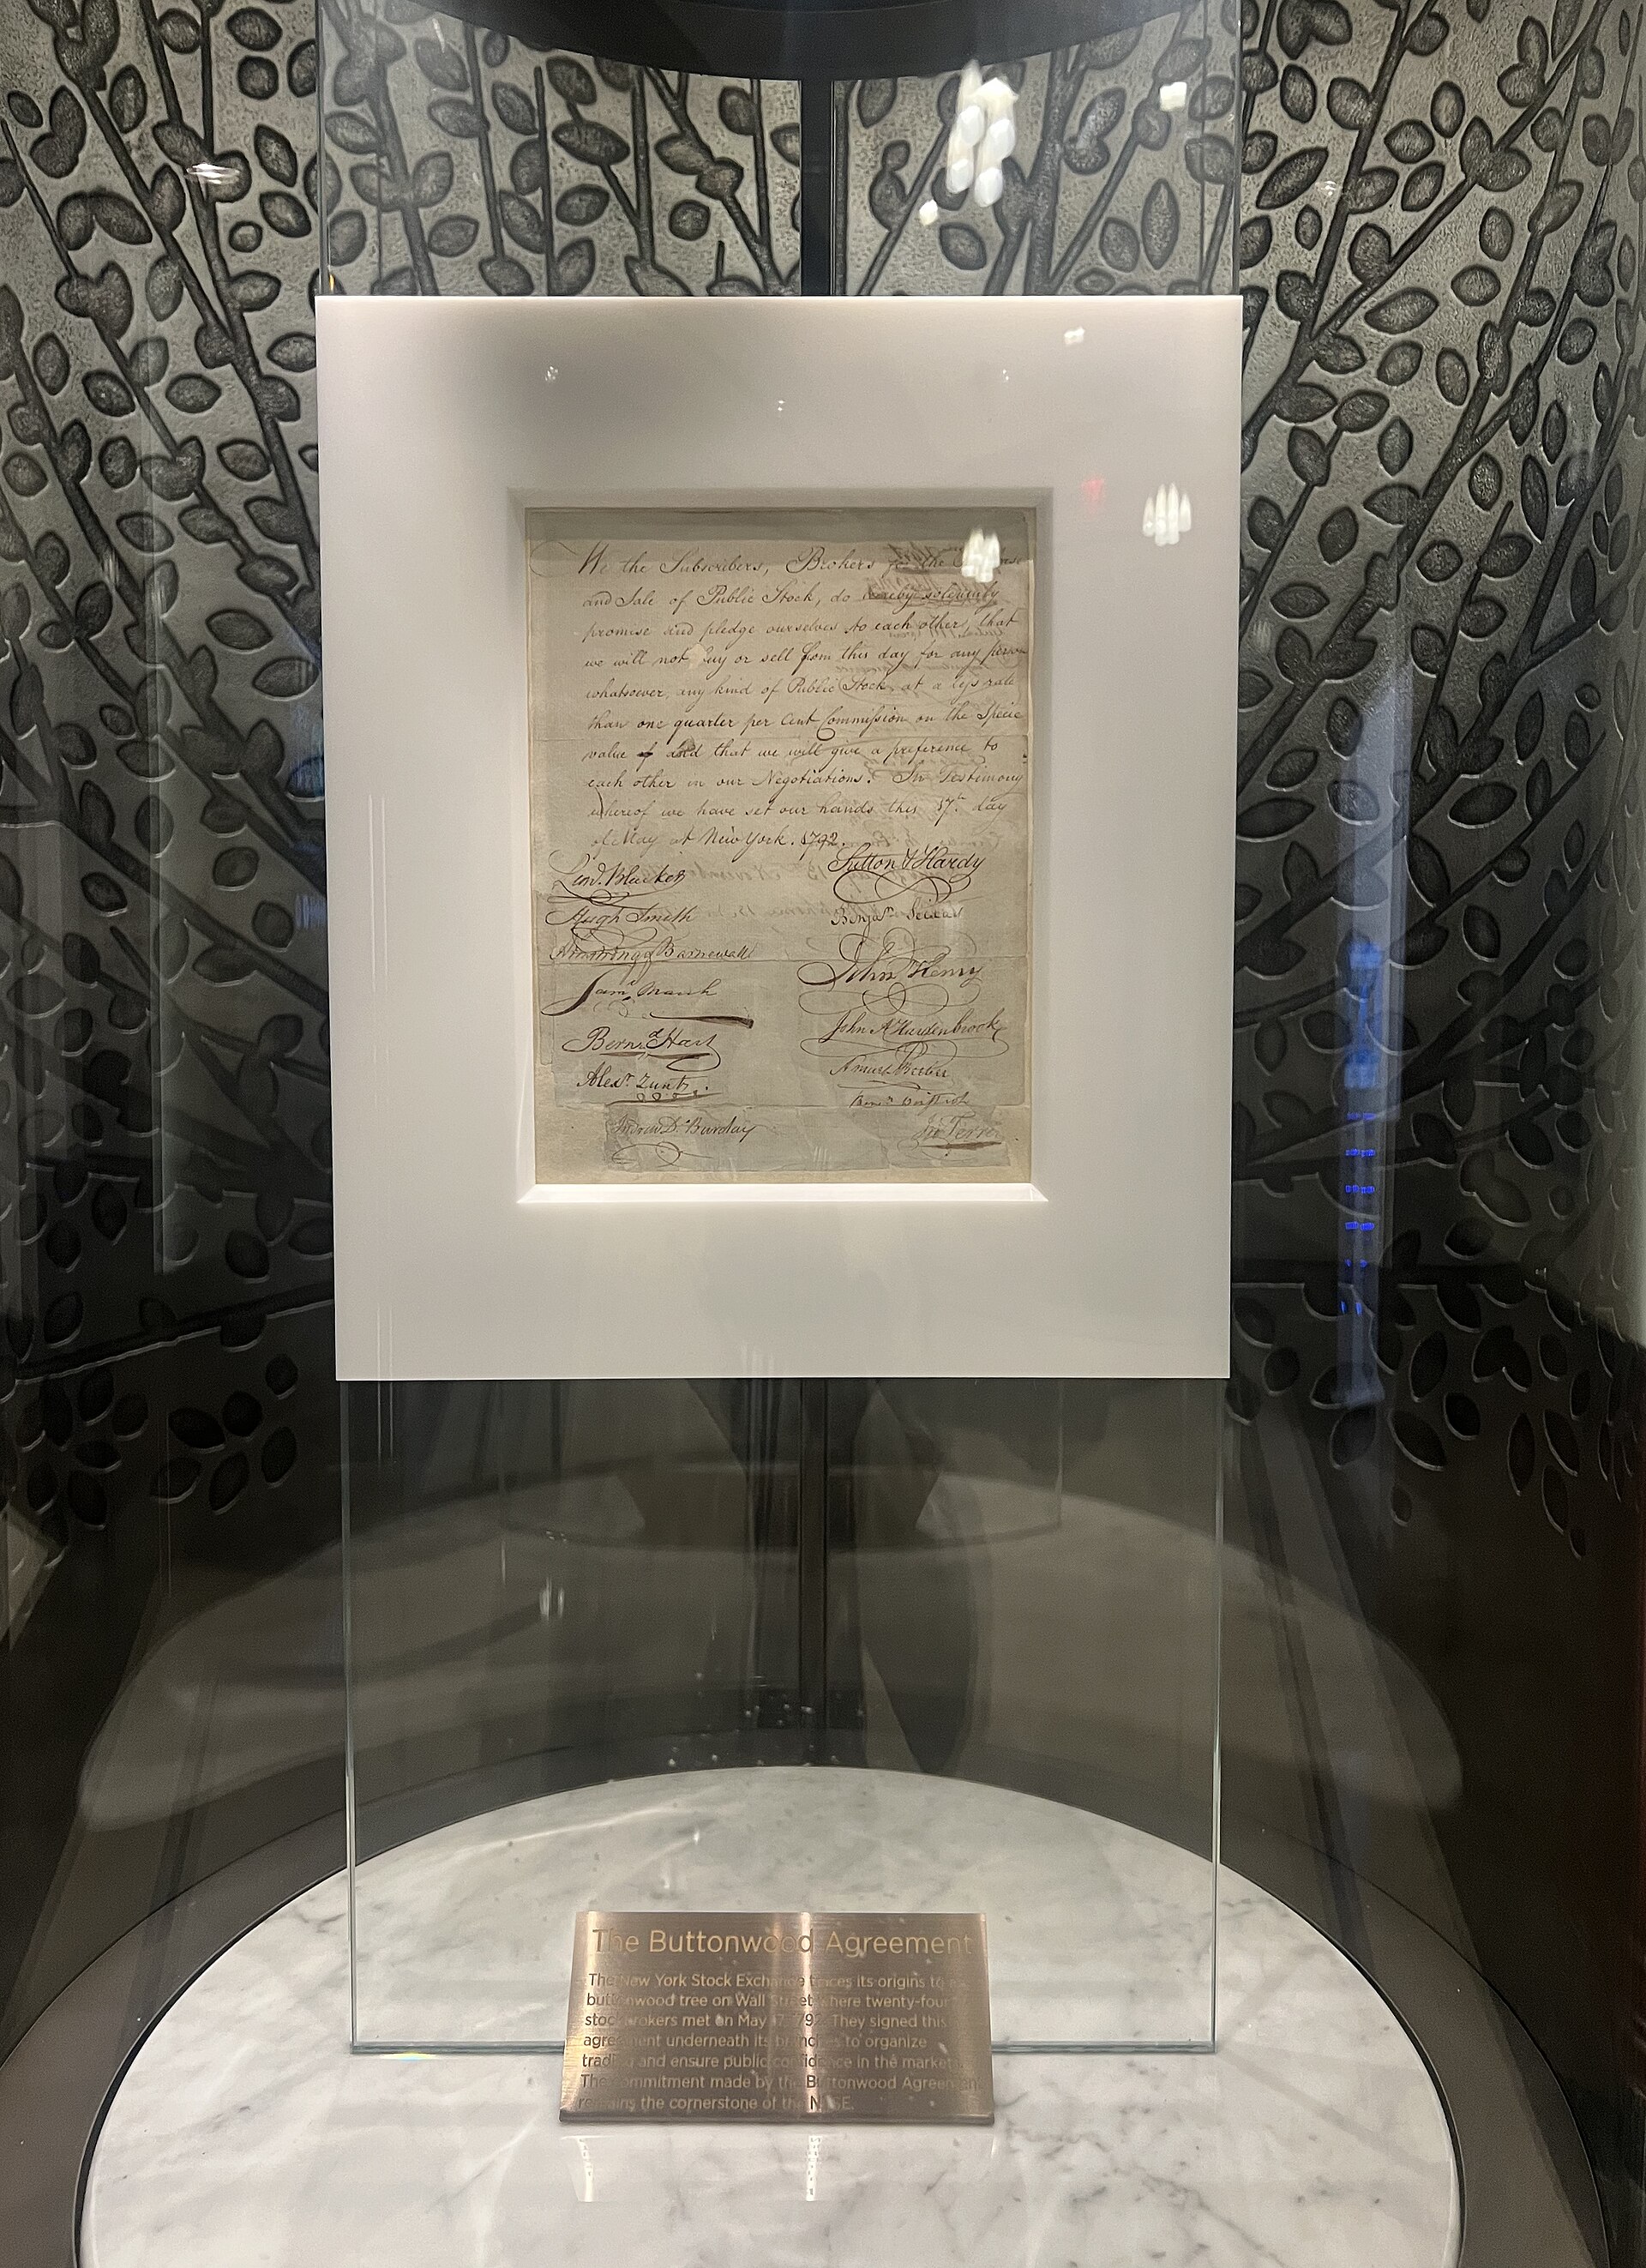 We the Subscribers, Brokers for the
and Sale of Public Stock, do hereby solemnly
promise and pledge ourselves to each other, that
we will not buy or sell from this day for any person
whatsoever, any kind of Public Stock, at a less rate
than one quarter per Cent Commission on the Specie
value of and that we will give a preference to
each other in our Negotiations. In Testimony
whereof we have set our hands this 17th day
of May at New York. 1792.
Leond. Bleecker
Hugh Smith
Armstrong & Barnewall
Saml. Marsh
Bernd. Hart
Alexr. Zuntz
Andrew D. Barclay
Sutton & Hardy
Benjan. Seixas
John Henry
John A. Hardenbrook
Amuel Beebee
The Buttonwood Agreement
The New York Stock Exchange traces its origins to a
buttonwood tree on Wall Street where twenty-four
stockbrokers met on May 17, 1792. They signed this
agreement underneath its branches to organize
trading and ensure public confidence in the market.
The commitment made by the Buttonwood Agreement
remains the cornerstone of the NYSE.